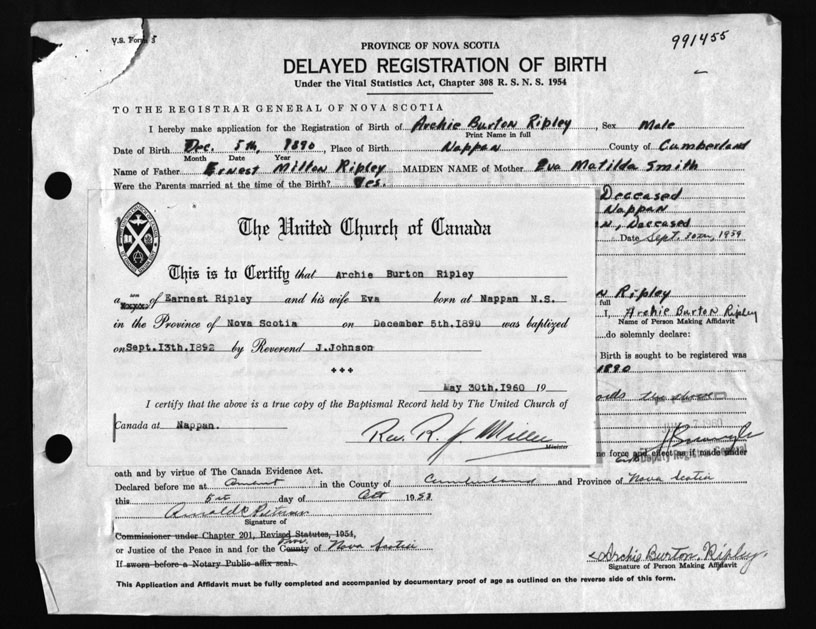 V.S. Form 5
991455
PROVINCE OF NOVA SCOTIA
DELAYED REGISTRATION OF BIRTH
Under the Vital Statistics Act, Chapter 308 R. S. N. S. 1954
TO THE REGISTRAR GENERAL OF NOVA SCOTIA
I hereby make application for the Registration of Birth of Archie Burton Ripley, Sex Male
Print Name in full
Date of Birth Dec. 5th, 1890, Place of Birth Nappan County of Cumberland
Month Date Year
Name of Father Ernest Milton Ripley MAIDEN NAME of Mother Eva Matilda Smith
Were the Parents married at the time of the Birth? Yes.
Deceased
Nappan
Deceased
Date Sept. 30th, 1959
The United Church of Canada
This is to Certify that Archie Burton Ripley
a son of Earnest Ripley and his wife Eva born at Nappan N.S.
in the Province of Nova Scotia on December 5th.1890 was baptized
on Sept.13th.1892 by Reverend J.Johnson
+++
May 30th.1960 19
I certify that the above is a true copy of the Baptismal Record held by The United Church of
Canada at Nappan.
Rev. R. J. Miller
Minister
n Ripley
full
I, Archie Burton Ripley
Name of Person Making Affidavit
do solemnly declare:
Birth is sought to be registered was
1890
the above
me force and effect as if made under
oath and by virtue of The Canada Evidence Act.
Declared before me at Amherst in the County of Cumberland and Province of Nova Scotia
this day of Oct 19
Signature of
Commissioner under Chapter 201, Revised Statutes, 1954,
or Justice of the Peace in and for the County Prov. of Nova Scotia
If sworn before a Notary Public affix seal.
Archie Burton Ripley
Signature of Person Making Affidavit
This Application and Affidavit must be fully completed and accompanied by documentary proof of age as outlined on the reverse side of this form.